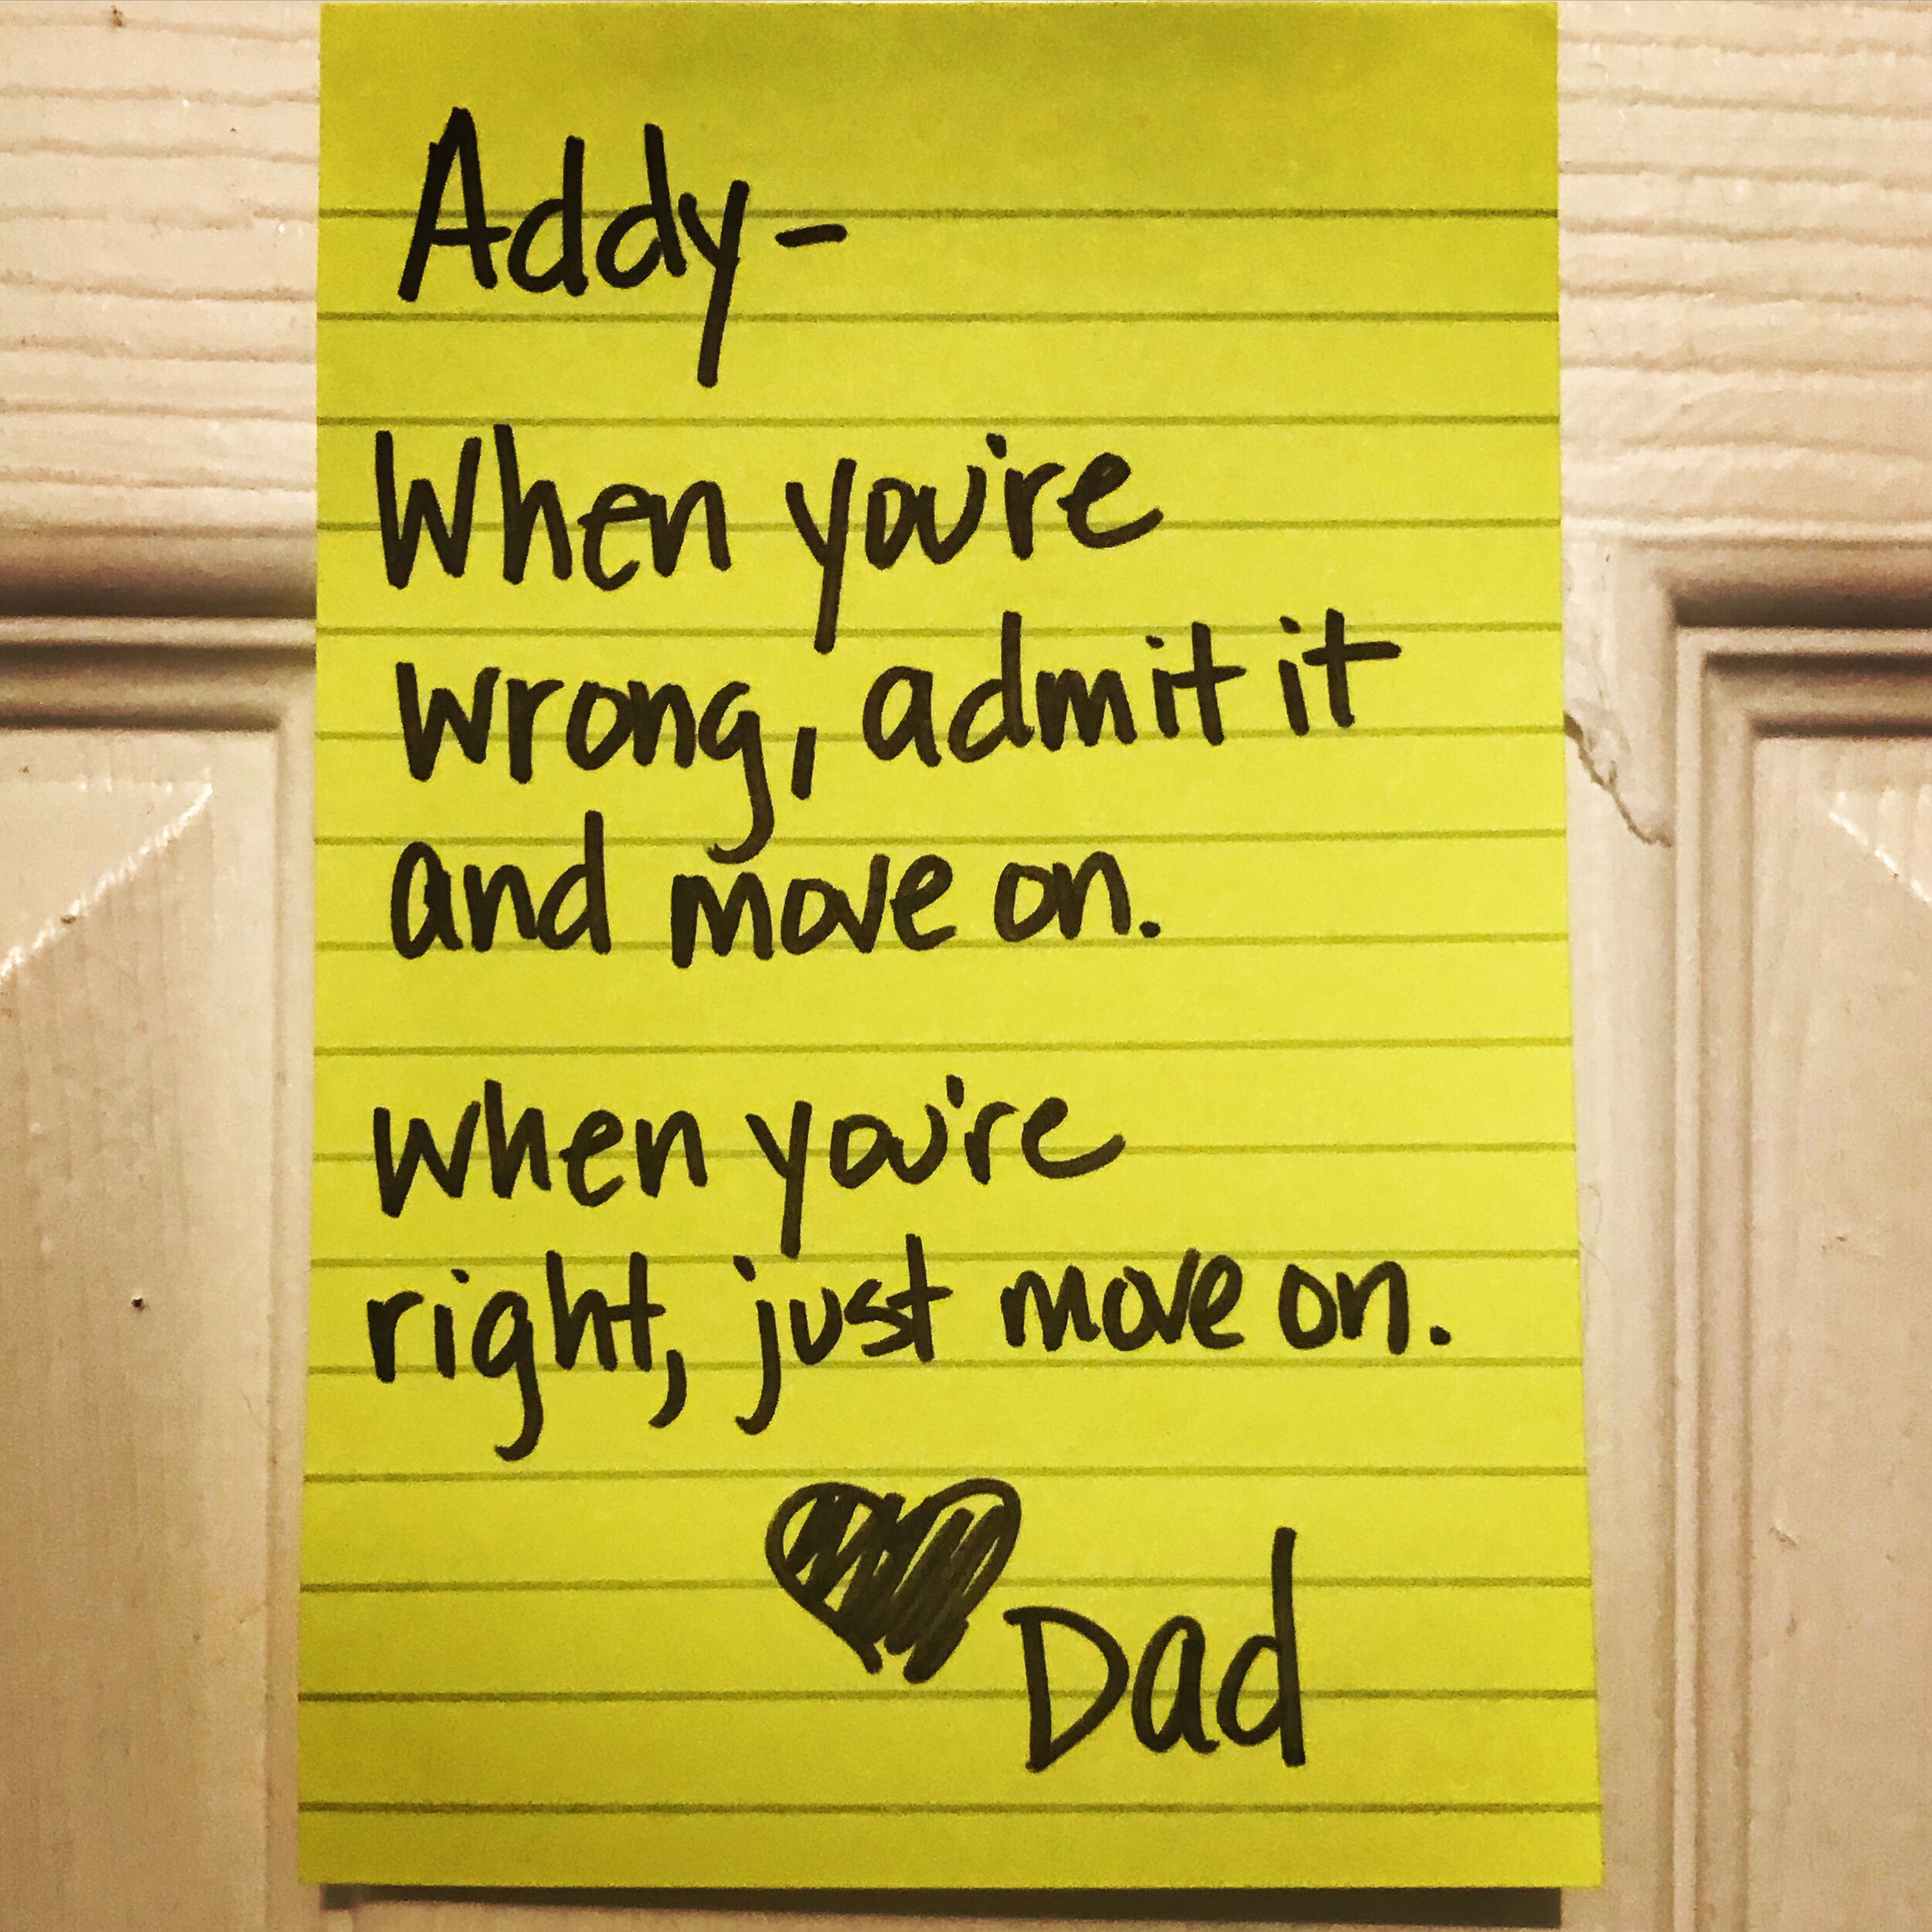 Addy-
When you're
wrong, admit it
and move on.
When you're
right, just move on.
Dad